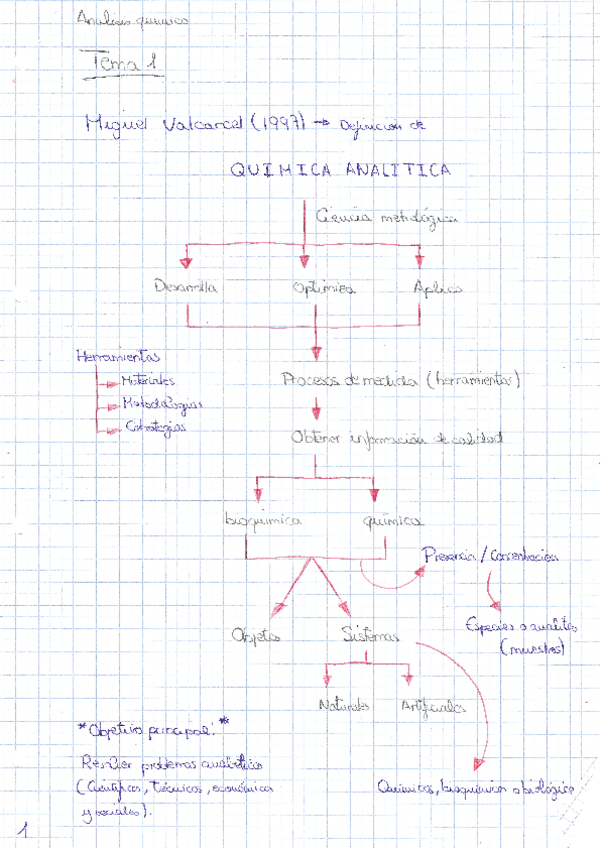 Analisis quimico
Tema 1
Miguel Valcarcel (1997) → Definición de
QUIMICA ANALITICA
Ciencia metrológica
Desarrolla Optimiza Aplica
Herramientas
Procesos de medida (herramientas)
Materiales
Metodologias
Estrategias
Obtener información de calidad
bioquimica química
Presencia / Concentración
Especies o analitos
(muestras)
Objetos Sistemas
Naturales Artificiales
*Objetivo principal:*
Resolver problemas analíticos
(Científicos, técnicos, económicos
y sociales).
Químicos, bioquímicos o biológico
1